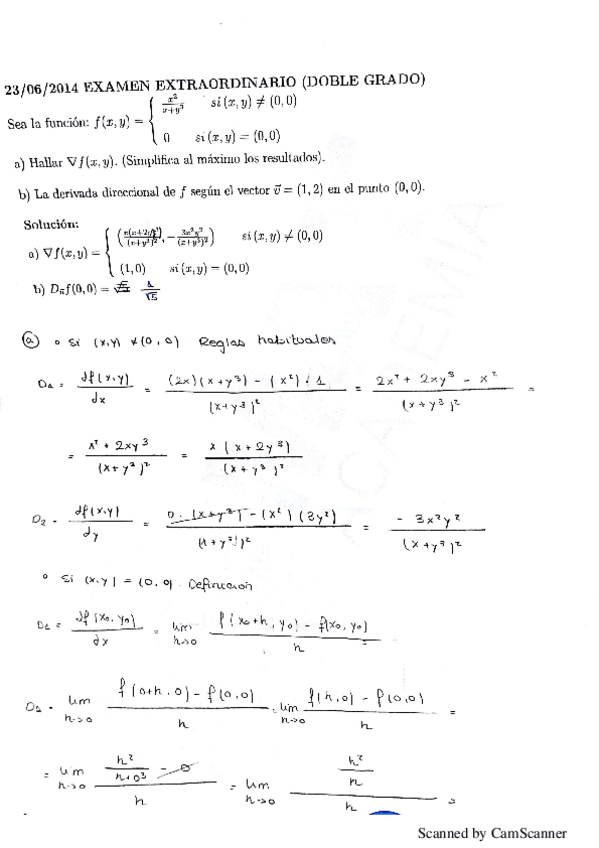 23/06/2014 EXAMEN EXTRAORDINARIO (DOBLE GRADO)
Sea la función: f(x, y) = { x²/(x+y³) si (x, y) ≠ (0, 0)
0 si (x, y) = (0, 0)
a) Hallar ∇f(x, y). (Simplifica al máximo los resultados).
b) La derivada direccional de f según el vector v⃗ = (1, 2) en el punto (0, 0).
Solución:
a) ∇f(x, y) = { (x(x+2y³)/(x+y³)², −3x²y²/(x+y³)²) si (x, y) ≠ (0, 0)
(1, 0) si (x, y) = (0, 0)
b) Dᵤf(0, 0) = 1/√5
ⓐ ∘ Si (x,y) ≠ (0,0) Reglas habituales
D₁ = df(x,y)/dx = ((2x)(x+y³) − (x²)·1)/(x+y³)² = (2x² + 2xy³ − x²)/(x+y³)² =
= (x² + 2xy³)/(x+y³)² = x(x+2y³)/(x+y³)²
D₂ = df(x,y)/dy = (0·(x+y³) − (x²)(3y²))/(x+y³)² = −3x²y²/(x+y³)²
∘ Si (x,y) = (0,0) Definición
D₁ = df(x₀,y₀)/dx = lim h→0 (f(x₀+h, y₀) − f(x₀,y₀))/h =
D₁ = lim h→0 (f(0+h,0) − f(0,0))/h = lim h→0 (f(h,0) − f(0,0))/h =
= lim h→0 (h²/(h+0³) − 0)/h = lim h→0 (h²/h)/h =
Scanned by CamScanner